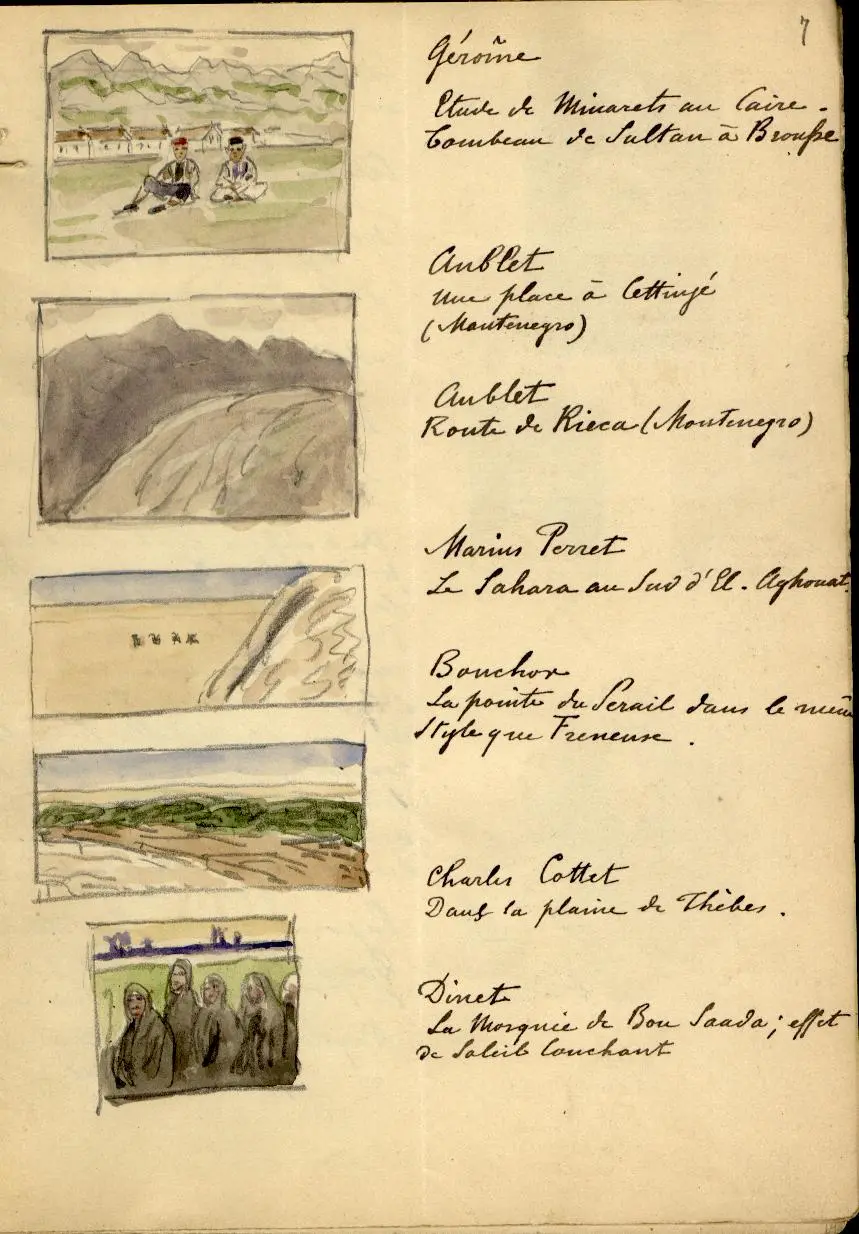 7
Gérôme
Etude de Minarets au Caire.
Tombeau de Sultan à Brousse
Aublet
une place à Cettinjé
(Montenegro)
Aublet
Route de Rieca (Montenegro)
Marius Perret
Le Sahara au Sud d'El-Aghouat.
Bouchor
La pointe du Serail dans le même
Style que Freneuse.
Charles Cottet
Dans la plaine de Thèbes.
Dinet
La Mosquée de Bou Saada; effet
de Soleil Couchant